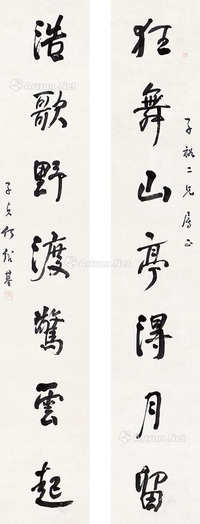 狂舞山亭得月留
子裕二兄属正
浩歌野渡驚雲起
子貞何紹基